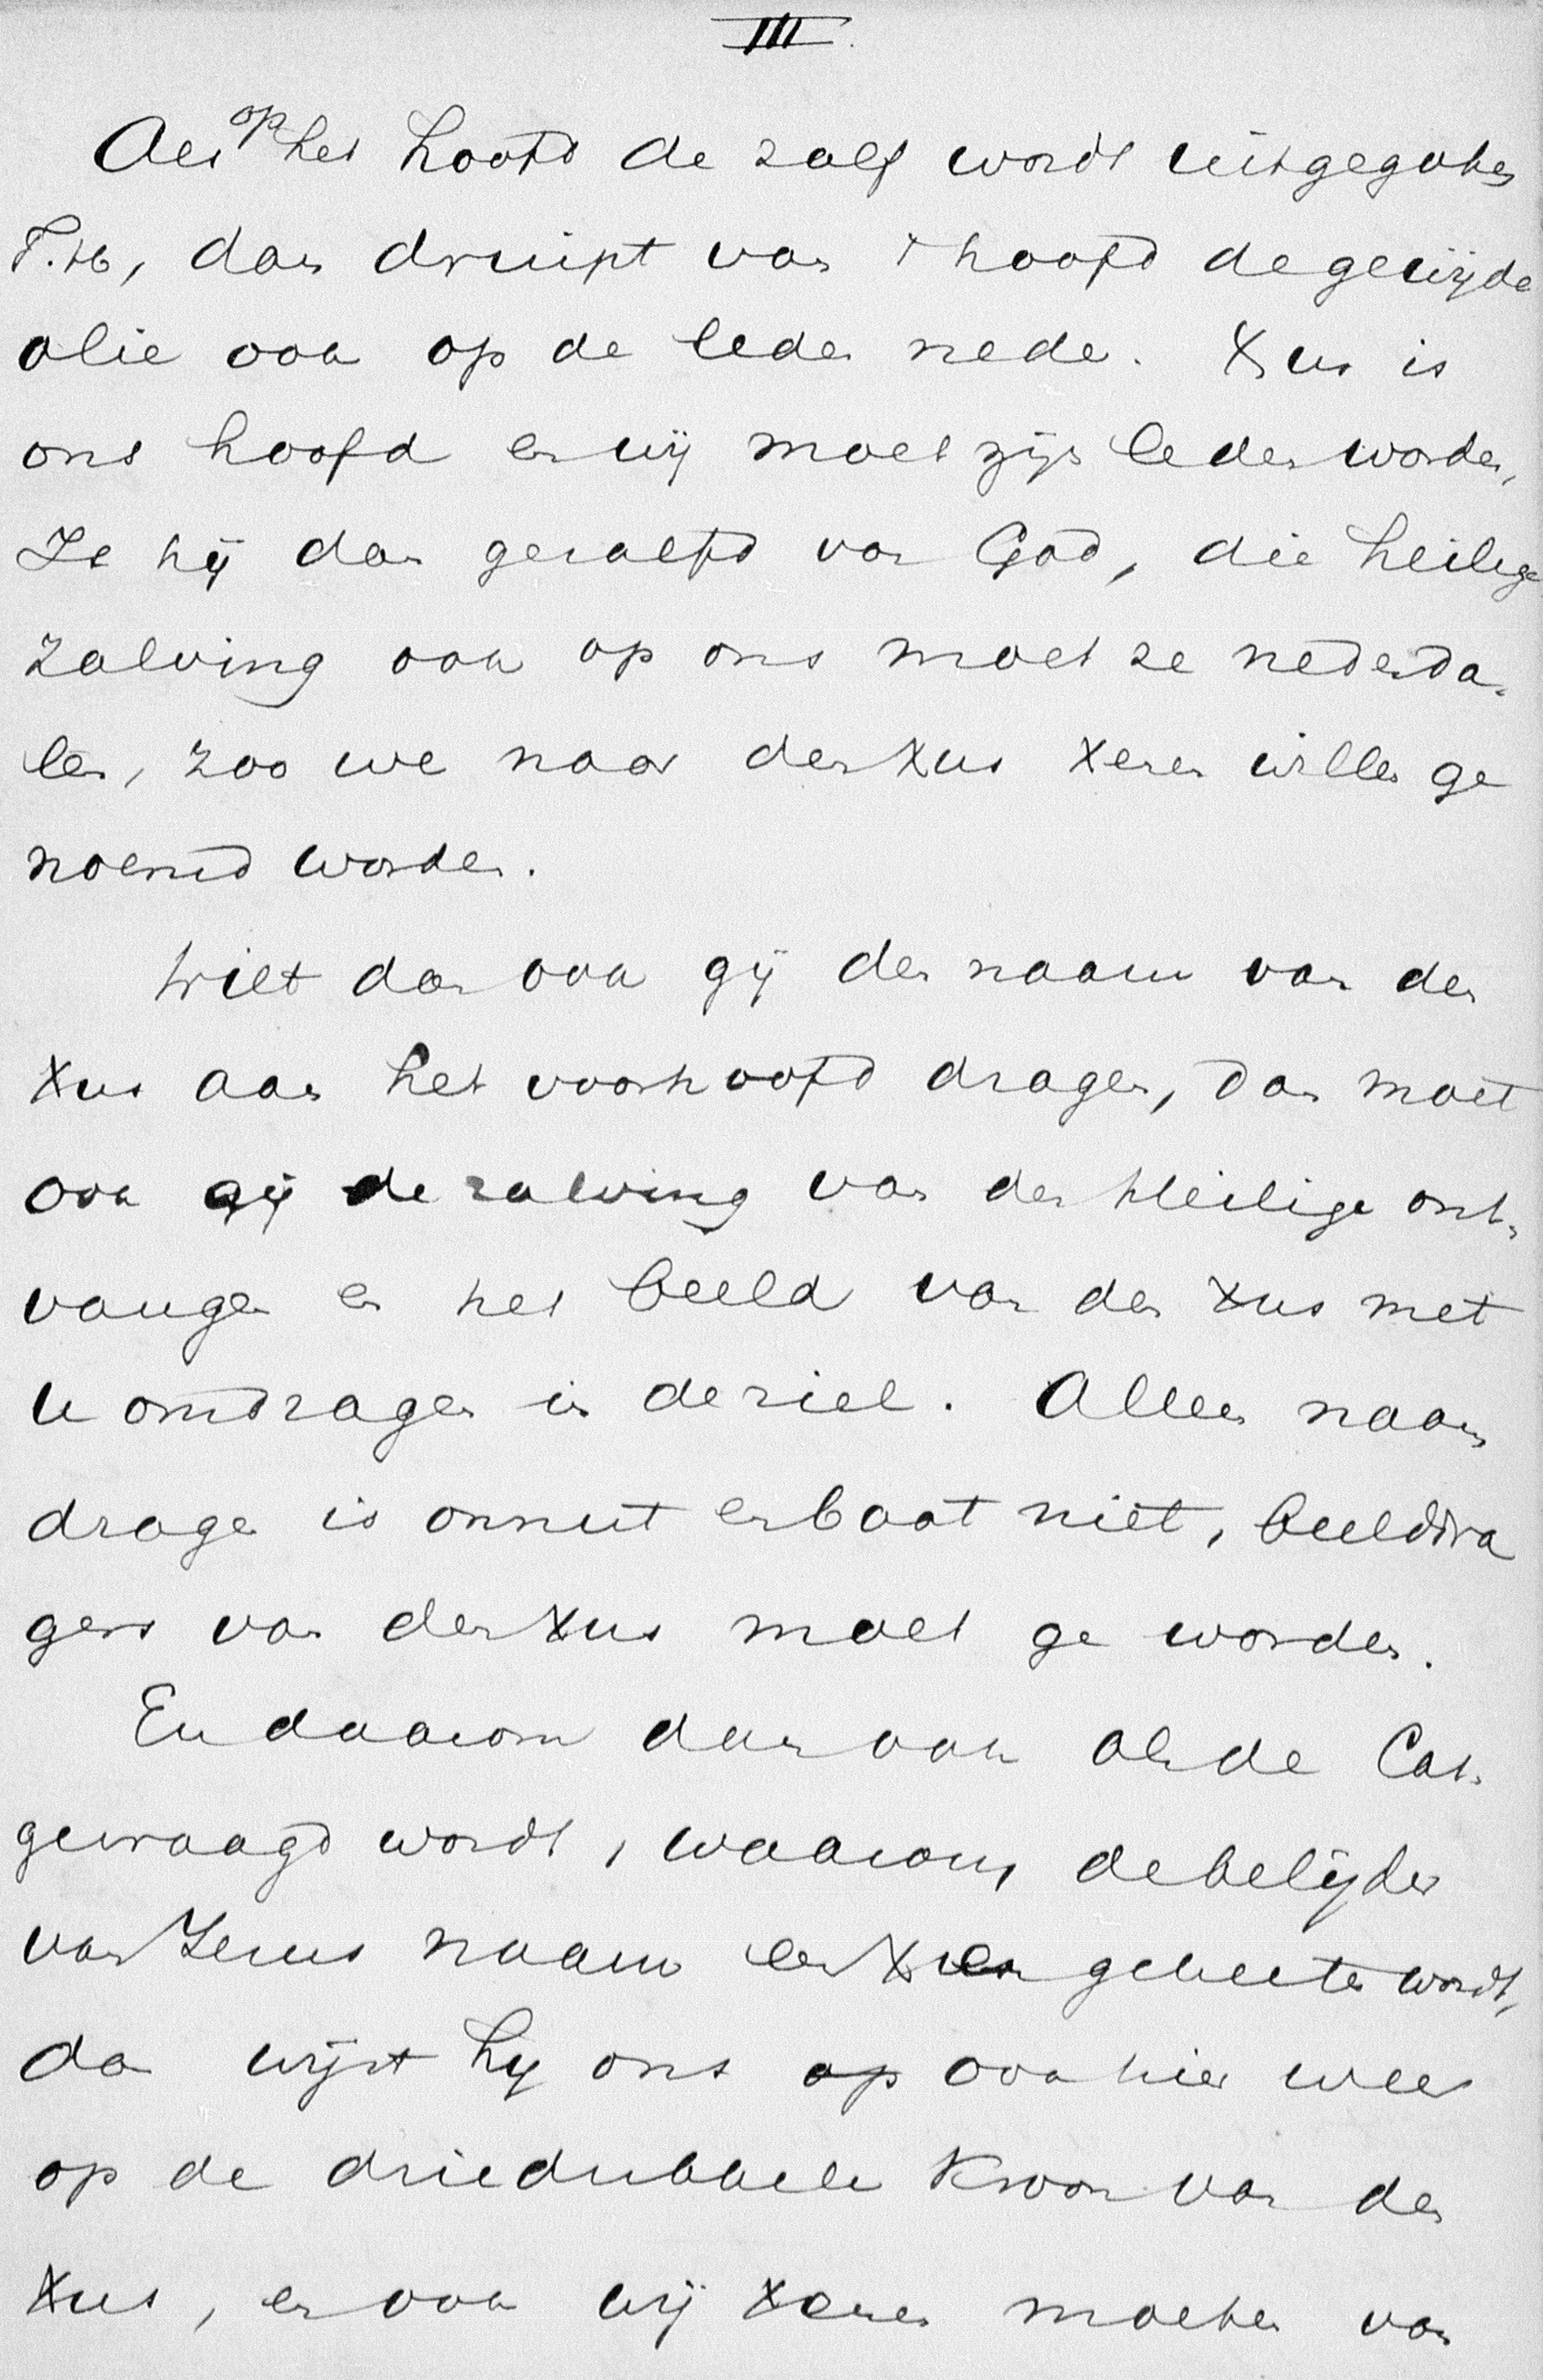 III.
Als op het hoofd de zalf wordt uitgegoten
T.H., dan druipt van 't hoofd de gewijde
olie ook op de leden neder. Xus is
ons hoofd en wij moet zijn leden worden,
Is hij dan gezalfd van God, die heilige
zalving ook op ons moet ze nederda-
len, zoo we naar den Xus Xenen willen ge
noemd worden.
Wilt dan ook gij den naam van den
Xus aan het voorhoofd dragen, dan moet
ook gij de zalving van den Heilige ont-
vangen en het beeld van den Xus met
u omdragen in de ziel. Alleen naam
dragen is onnut en baat niet, beelddra
gers van den Xus moet ge worden.
En daarom dan ook als de Cat.
gevraagd wordt, waarom de belijder
van Jezus naam een Xen geheeten wordt,
dan wijst hij ons op ook hier weer
op de driedubbele kroon van den
Xus, en ook wij Xenen moeten van